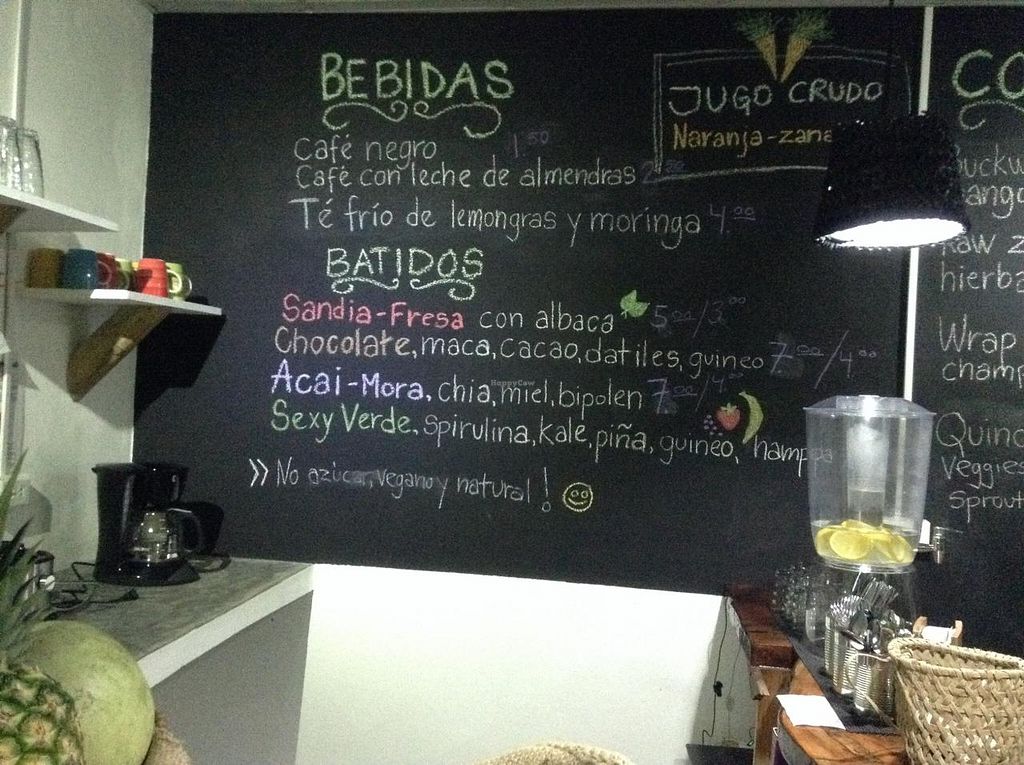 BEBIDAS
Café negro 1.50
Café con leche de almendras
Té frío de lemongras y moringa 4.00
BATIDOS
Sandia-Fresa con albaca 5.00/3.00
Chocolate, maca, cacao, datiles, guineo 7.00/4.00
Acai-Mora, chia, miel, bipolen 7.00/4.00
Sexy Verde, Spirulina, kale, piña, guineo, hamppa
>> No azúcar, vegano y natural!
JUGO CRUDO
Naranja-zana
CO
Buckw
ango
Raw z
hierba
Wrap
champ
Quino
Veggies
Sprout
HappyCow